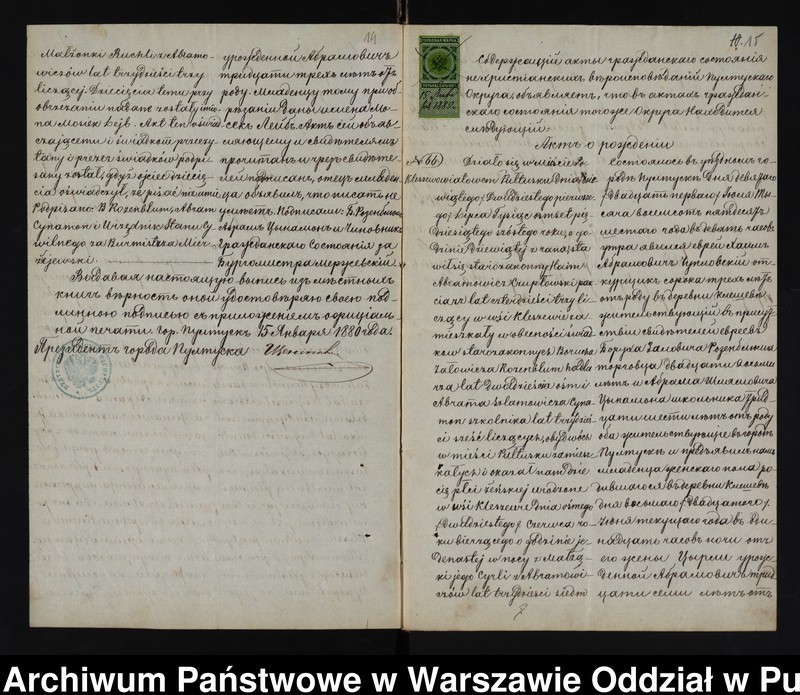 14
Małżonki Ruchli z Abramo-
wiczów lat trzydzieści trzy
liczącej. Dziecięciu temu przy
obrzezaniu nadane zostały imio-
na Mosiek Lejb. Akt ten oświad-
czającemu i świadkom przeczy-
tany i przez świadków podpi-
sany został, gdyż ojciec dziecię-
cia oświadczył, że pisać nie umie
Podpisano: B. Rozenblum, Abram
Cynamon i Urzędnik Stanu Cy-
wilnego za Burmistrza Mier-
żejewski.
урожденной Абрамовичъ
тридцати трехъ лѣтъ отъ
роду. Младенцу тому при об-
рѣзаніи даны имена Мо-
секъ Лейбъ. Актъ сей объяв-
ляющему и свидѣтелямъ
прочитанъ и чрезъ свидѣте-
лей подписанъ, отецъ младен-
ца объявилъ, что писать не
умѣетъ. Подписали: Б. Розенблюмъ
Абрамъ Цынамонъ и Чиновникъ
Гражданскаго Состоянія за
Бургомистра Мержеевскій.
Выдавая настоящую выпись изъ мѣстныхъ
книгъ вѣрность оной удостовѣряю своею под-
линною подписью съ приложеніемъ оффиціаль-
ной печати. Гор. Пултускъ 15 Января 1880 года.
Президентъ города Пултуска
15
ГЕРБОВАЯ МАРКА
15 Янва
ря 1880 г.
Содержащій акты гражданскаго состоянія
нехристіанскихъ вѣроисповѣданій Пултускаго
Округа, объявляетъ, что въ актахъ граждан-
скаго состоянія тогоже Округа находится
слѣдующій:
Актъ о рожденіи
№ 66)
Kleszewo
Działo się w mieście Po-
wiatowem Pułtusku dnia dzie-
wiątego / dwudziestego pierwsze-
go / Lipca tysiąc ośmset pięć-
dziesiątego szóstego roku, o go-
dzinie dziewiątej z rana, sta-
wił się starozakonny Haim
Abramowicz pa-
ciarz lat czterdzieści trzy li-
czący w wsi Kleszewie za-
mieszkały w obecności świad-
ków starozakonnych Borucha
Zalowicza Rozenblum handla-
rza lat dwadzieścia ośm i
Abrama Szlamowicza Cyna-
mon szkolnika lat trzydzieś-
ci sześć liczących, obydwóch
w mieście Pułtusku zamiesz-
kałych i okazał nam dzie-
cię płci żeńskiej urodzone
w wsi Kleszewie dnia ósmego
/ dwudziestego / Czerwca ro-
ku bieżącego o godzinie je-
denastej w nocy z Małżą-
ki jego Cyrli z Abramowi-
czów lat trzydzieści siedm
Состоялось въ уѣздномъ го-
родѣ Пултускѣ дня девятаго
/ двадцать перваго / Іюля ты-
сяча восемсотъ пятдесятъ
шестаго года въ девять часовъ
утра явился еврей Хаимъ
Абрамовичъ па-
кціщикъ сорока трехъ лѣтъ
отъ роду въ деревнѣ Клешевѣ
жительствующій въ присут-
ствіи свидѣтелей евреевъ
Боруха Заловича Розенблюма
торговца двадцати восьми
лѣтъ и Абрама Шлямовича
Цынамона школьника трид-
цати шести лѣтъ отъ роду
оба жительствующіе въ городѣ
Пултускѣ и предъявилъ намъ
младенца женскаго пола ро-
дившагося въ деревнѣ Клешевѣ
дня восьмаго / двадцатаго /
Іюня текущаго года въ оди-
надцать часовъ ночи отъ
его жены Цырли урож-
денной Абрамовичъ трид-
цати семи лѣтъ отъ
Archiwum Państwowe w Warszawie Oddział w Pu